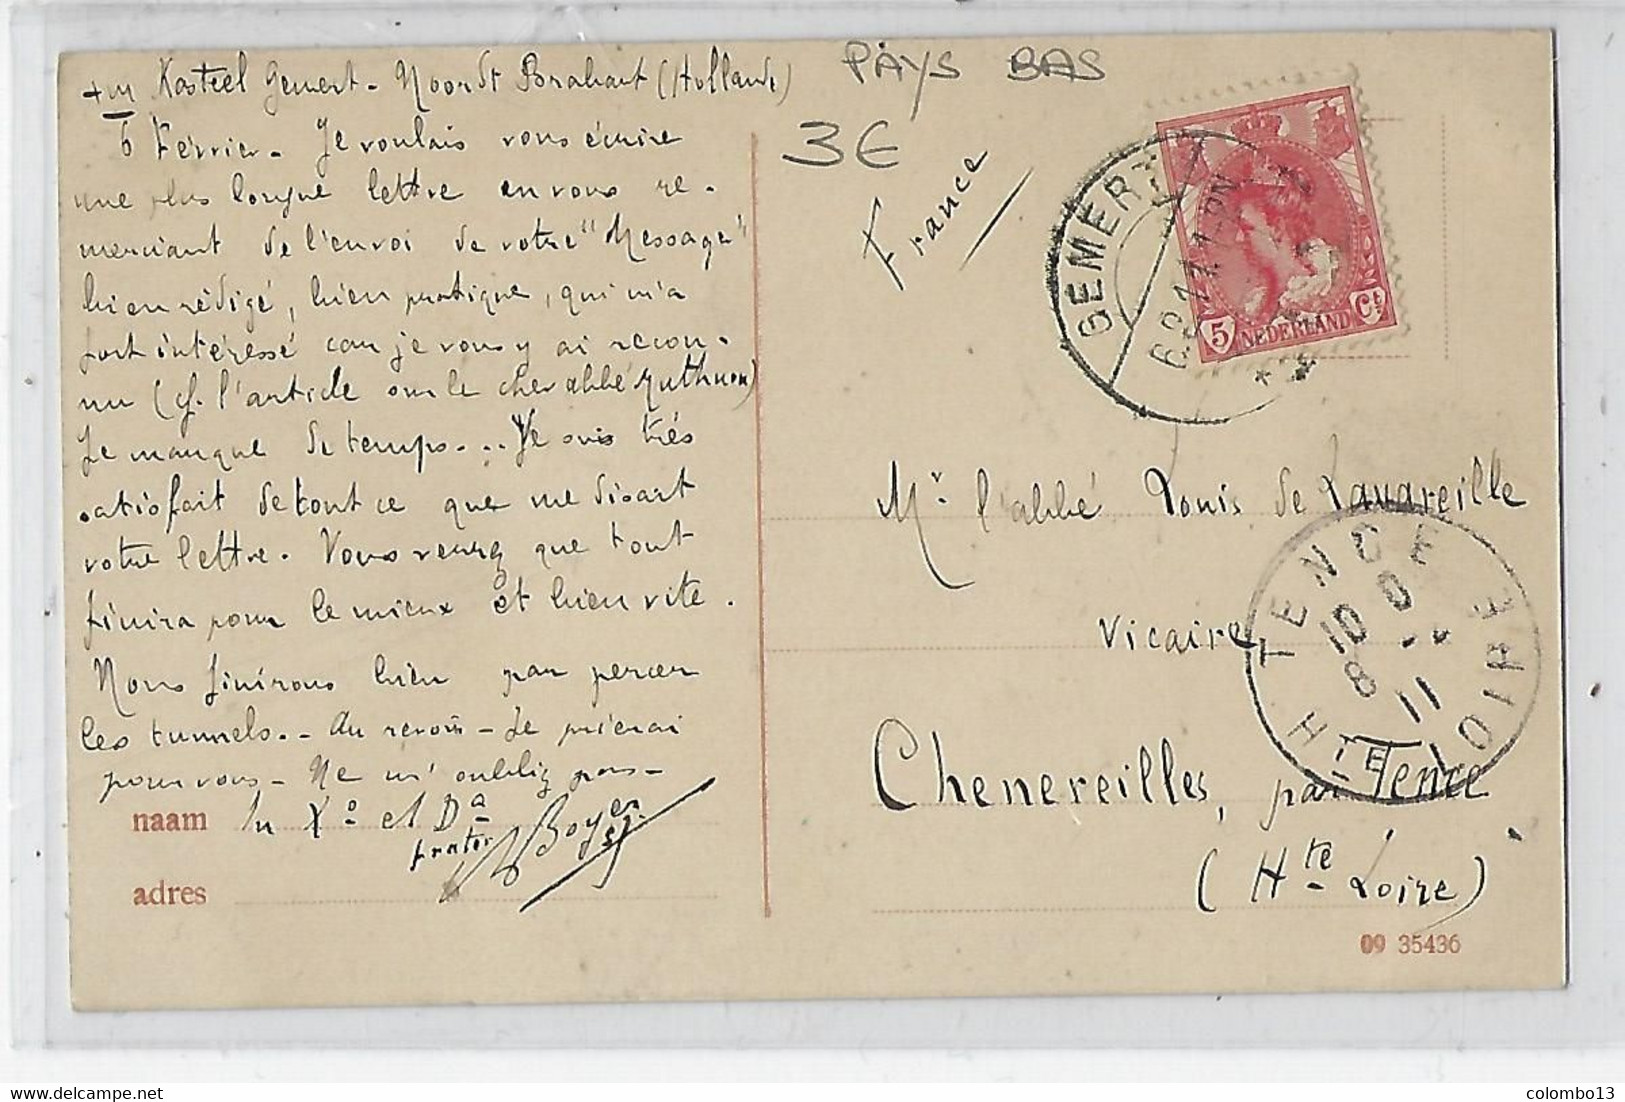 + M Kasteel Gemert - Noordt Brabant (Hollande)
6 Février - Je voulais vous écrire
une plus longue lettre en vous re-
merciant de l'envoi de votre "Message"
bien rédigé, bien pratique, qui m'a
fort intéressé car je vous y ai recon-
nu (cf. l'article sur le cher abbé Muthuon)
Je manque de temps... Je suis très
satisfait de tout ce que me disait
votre lettre. Vous verrez que tout
finira pour le mieux et bien vite.
Nous finirons bien par percer
les tunnels.. Au revoir - Je prierai
pour vous - Ne m'oubliez pas -
naam In Xº et Dª
frater Boyer
SJ
adres
PAYS BAS
3€
France
GEMERT
6 FEB 11 7-12N
5 NEDERLAND Ct
Mr l'abbé Louis de Lavareille
Vicaire
Chenereilles, par Tence
(Hte Loire)
TENCE
10 D
8 -2
11
HTE LOIRE
09 35436
colombo13